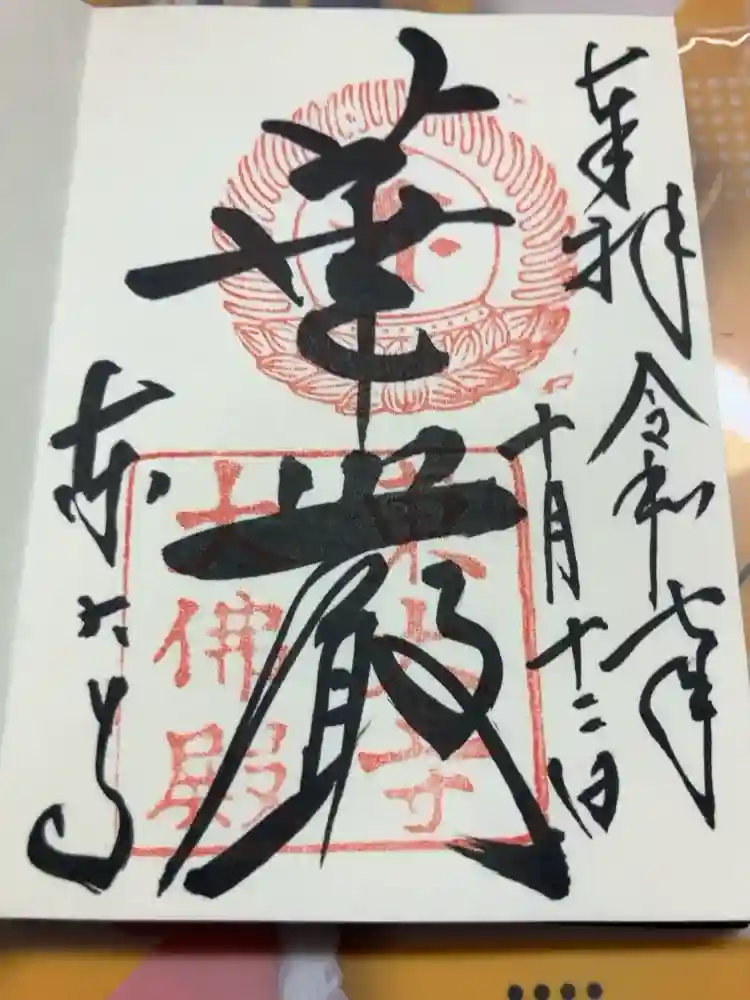 奉拝 令和七年
十月十二日
華嚴
東大寺
大佛殿
東大寺